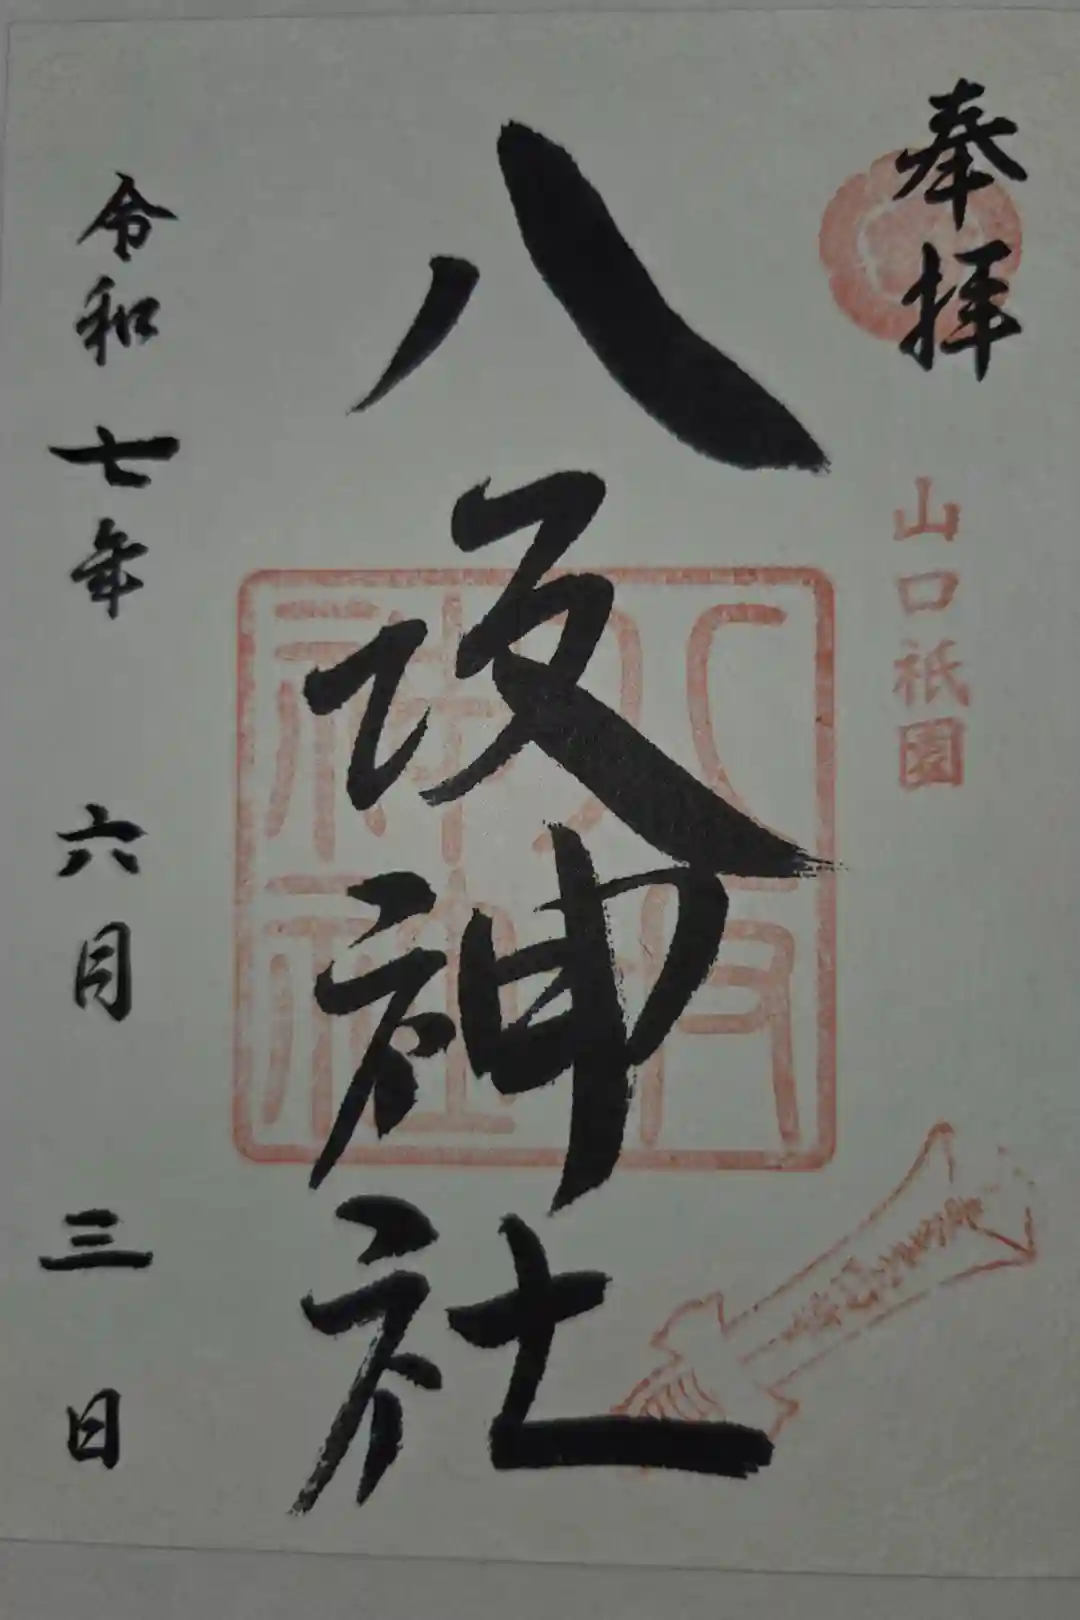 奉拝
山口祇園
八坂神社
八坂神社
令和七年 六月 三日